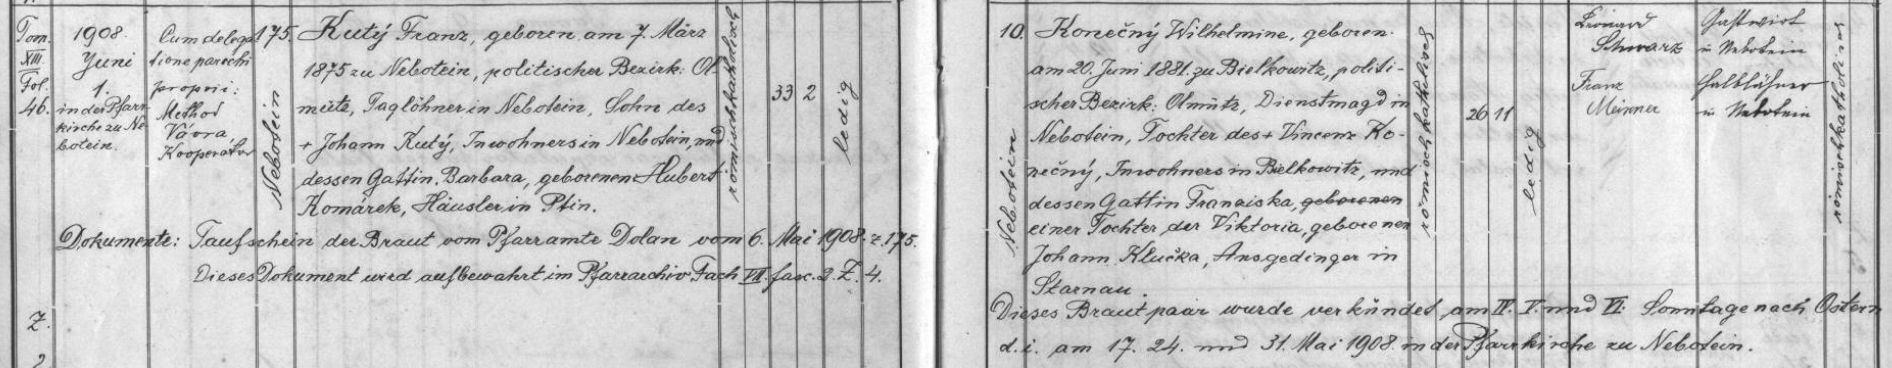 Tom. XIII. Fol. 46.
1908. Juni 1. in der Pfarr-
kirche zu Ne-
botein.
Cum delega-
tione parochi
proprii:
Method
Vávra
Kooperator
Nebotein
175. Kutý Franz, geboren am 7. März
1875 zu Nebotein, politischer Bezirk: Ol-
mütz, Taglöhner in Nebotein, Sohn des
+ Johann Kutý, Inwohners in Nebotein, und
dessen Gattin Barbara, geborenen Hubert
Komárek, Häusler in Ptin.
römischkatholisch
33 2
ledig
Dokumente: Taufschein der Braut vom Pfarramte Dolan vom 6. Mai 1908. z. 175.
Dieses Dokument wird aufbewahrt im Pfarrarchiv Fach VIII. fasc. 2. Z. 4.
Z.
2
Nebotein
10. Konečný Wilhelmine, geboren
am 20. Juni 1881. zu Bielkowitz, politi-
scher Bezirk: Olmütz, Dienstmagd in
Nebotein, Tochter des + Vincenz Ko-
nečný, Inwohners in Bielkowitz, und
dessen Gattin Franziska, geborenen
einer Tochter der Viktoria, geborenen
Johann Klučka, Ausgedinger in
Starnau.
römischkatholisch
26 11
ledig
Leonard
Schwarz
Gastwirt
in Nebotein
Franz
Meixner
Halblähner
in Nebotein
römischkatholisch
Dieses Brautpaar wurde verkündet am IV. V. und VI. Sonntage nach Ostern
d. i. am 17. 24. und 31. Mai 1908. in der Pfarrkirche zu Nebotein.